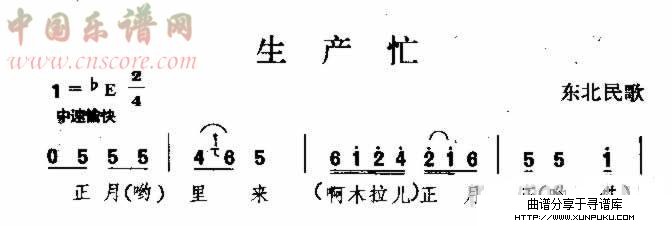 中国乐谱网
www.cnscore.com
生产忙
1=♭E 2/4
东北民歌
中速愉快
0 5 5 5 | 4 6 5 | 6 i 2 4 2 i 6 | 5 5 i |
正月(哟)里来 (啊木拉儿)正月
曲谱分享于寻谱库
HTTP://WWW.XUNPUKU.COM